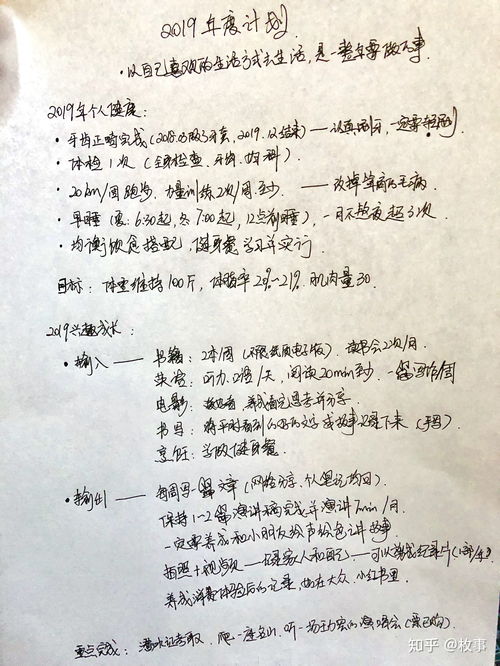 2019年度计划
·以自己喜欢的生活方式去生活,是一整年要做的事.
2019年个人健康:
·牙齿正畸完成(2018.03取了牙套,2019.12结束)——认真刷牙,一定要
·体检1次(全身检查、牙齿、妇科).
·20km/周跑步,力量训练2次/周至少. ——改掉的毛病
·早睡(夏:6:30起,冬7:00起,12点前睡),一月不熬夜超3次.
·均衡饮食搭配,健身餐学习并实行.
目标:体重维持100斤,体脂率20%~21%.肌肉量30.
2019兴趣成长:
·输入——书籍:2本/周(不限纸质电子版).读书会2次/月.
英语:听力/天,阅读20min至少.一写作/周
电影:养成看完思考并分享.
书写:将平时看到的好的文字或故事记录下来(手写)
烹饪:学做健身餐
·输出——每周写一篇文章(网络分享、个人笔记均可).
保持1-2篇演讲稿完成并演讲7min/月.
一定要养成和小朋友绘声绘色讲故事.
拍照+视频——记录家人和自己——可以纪录片(1部/年)
养成消费体验后的记录,如在大众、小红书里
重点完成:潜水证考取.爬一座名山.听一场的演唱会
知乎 @枚事